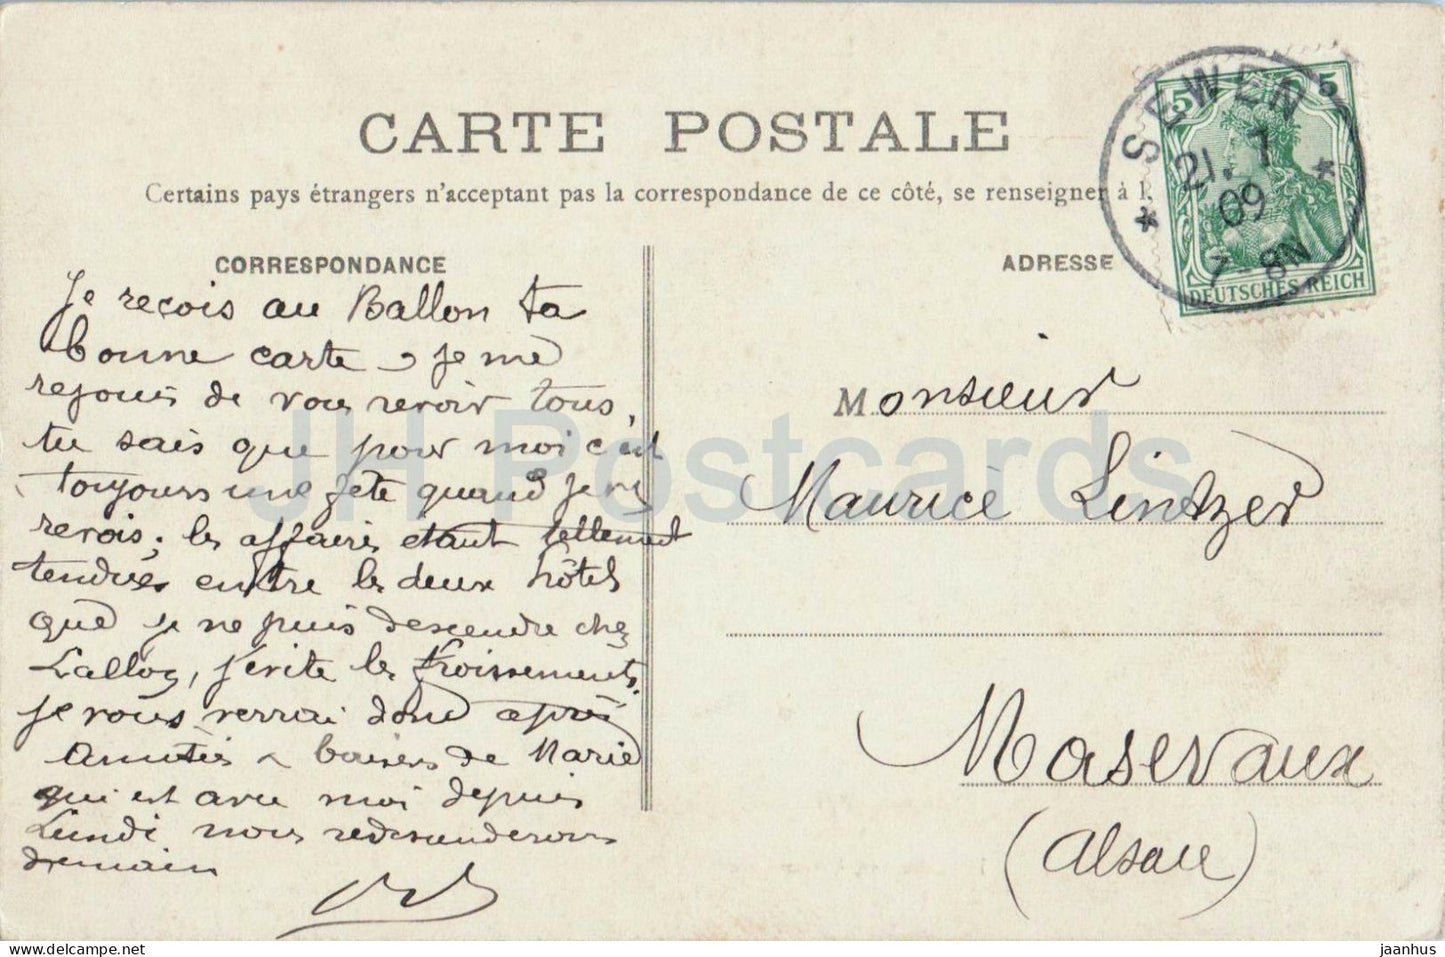 CARTE POSTALE
Certains pays étrangers n'acceptant pas la correspondance de ce côté, se renseigner à l
CORRESPONDANCE
ADRESSE
Je reçois au Ballon ta
bonne carte, je me
rejouis de vous revoir tous,
tu sais que pour moi c'est
toujours une fête quand je vs
revois; les affaires étant tellement
tendues entre les deux hôtels
que je ne puis descendre chez
Lalloz, j'évite les froissements.
je vous verrai donc après
Amitiés & baisers de Marie
qui est avec moi depuis
Lundi nous redescenderons
demain
Monsieur
Maurice Lintzer
Masevaux
(Alsace)
SEWEN
21. 7
09
7-8N
5 5
DEUTSCHES REICH
JH Postcards
www.delcampe.net
jaanhus